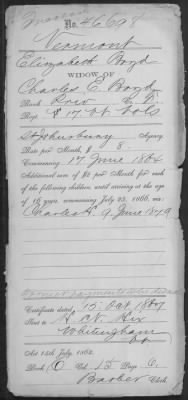 No. 46698
Vermont
Elizabeth Boyd
WIDOW OF
Charles E. Boyd
Rank Priv Co. D.
Regt. 17 Vt Vols
St Johnsbury Agency
Rate per Month, $ 8.
Commencing 17 June 1864
Additional sum of $2 per Month for each
of the following children, until arriving at the age
of 16 years, commencing July 25, 1866, viz:
Charles 9 June 1879
Former payments deducted
Certificate dated 15 Oct 1867
Sent to
Whitingham
Vt
Act 14th July, 1862.
Book C Vol. 15 Page 6.
Barber Clerk.